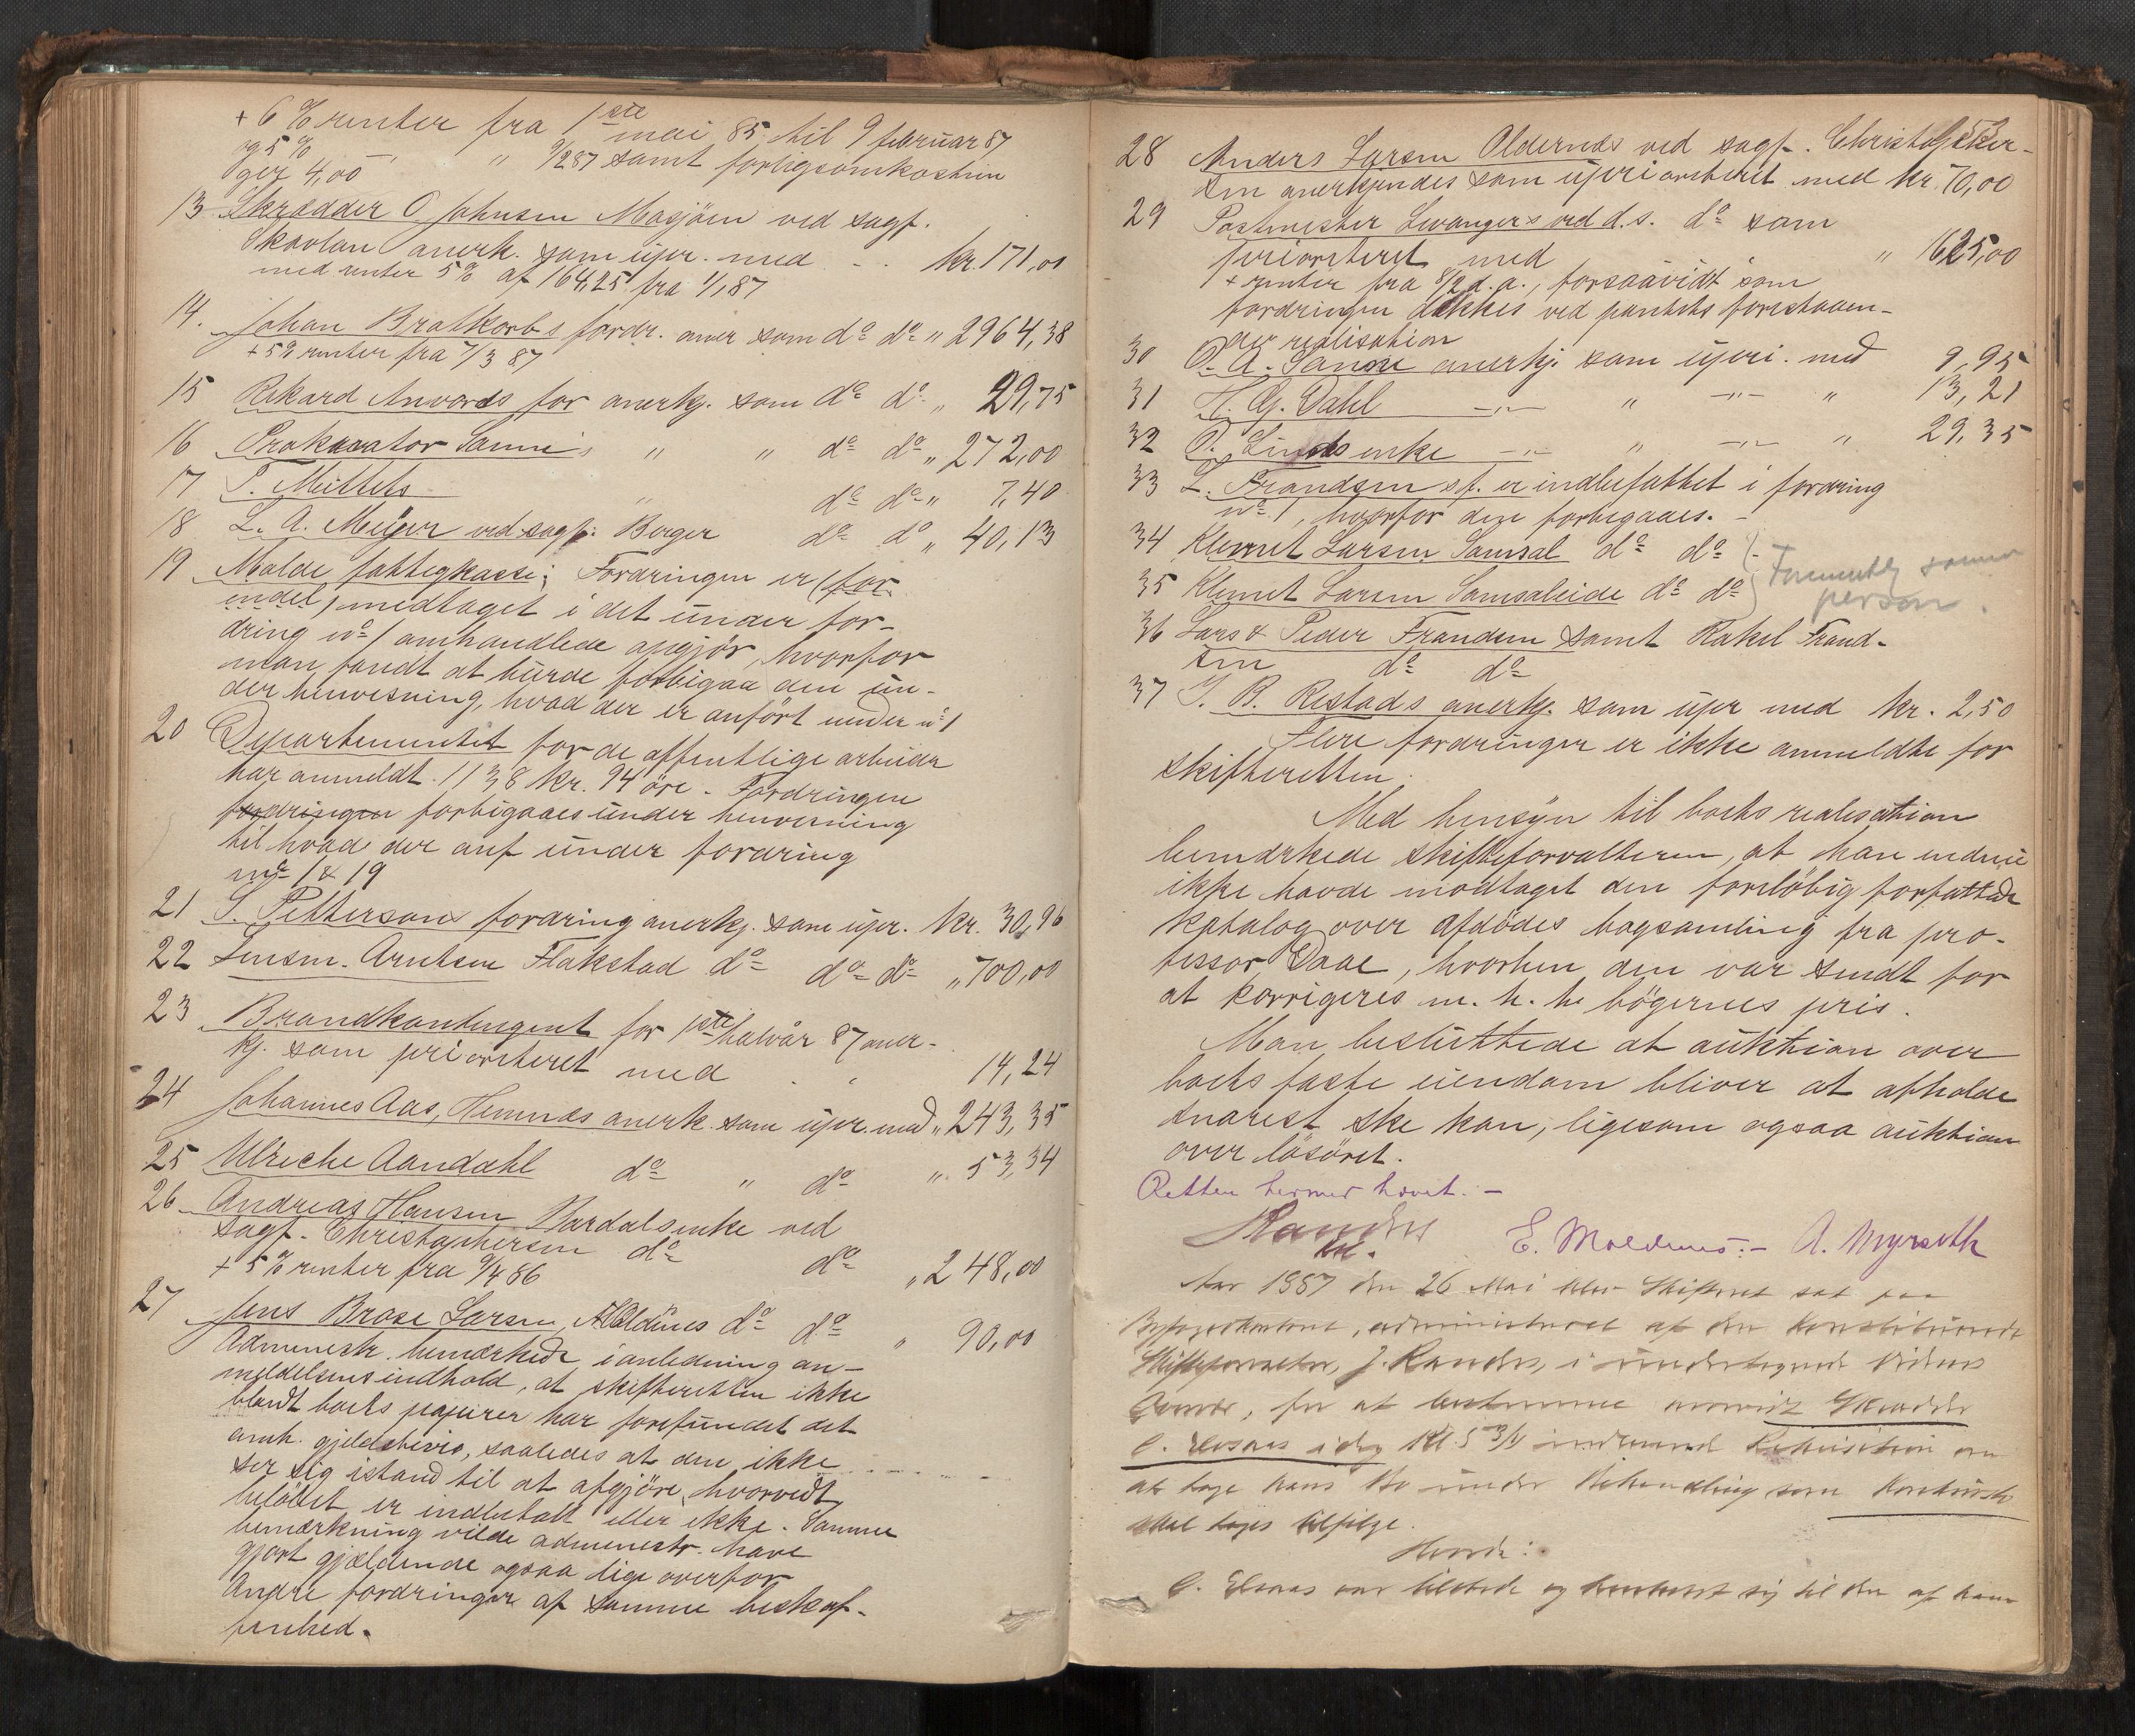 + 6 % renter fra 1ste mai 85 til 9 februar 87
og 5 % " 9/2 87 samt forligsomkostnin
ger 4,00
13 Skrædder O. Johnsen Mosjøen ved sagf.
Skavlan anerk. som upr. med - . kr. 171,01
med renter 5 % af 164,25 fra 1/1 87
14. Johan Bratkorbs fordr. aner som do do " 2964,38
+ 5 % renter fra 7/3 87
15 Rikard Anvords for anerkj. som do do " 29,75
16 Prokurator Sannes " " do do " 272,00
17 T. Meillets " do do " 7,40
18 L. A. Meijer ved sagf. Berger do do " 40,13
19 Molde fattigkasse; Fordringen er (for
endel) medtaget i det under for-
dring no 1 omhandlede opgjør, hvorfor
man fandt at burde forbigaa den un-
der henvisning, hvad der er anført under no 1
20 Departementet for de offentlige arbeider
har anmeldt 1138 kr. 94 öre. Fordringen
fordringen forbigaaes under henvisning
til hvad der anf under fordring
no 1 & 19
21 S. Pettersons fordring anerkj. som upr. kr. 30,96
22 Lensm. Arntsen Flakstad do do do " 700,00
23 Brandkontingent for 1ste halvår 87 aner-
kj. som prioriteret med . " 14,24
24 Johannes Aas, Hemnæs anerk. som upr. med " 243,35
25 Ulriche Aandahl do " do " 53,34
26 Andreas Hansen Vardals enke ved
sagf. Christophersen do do " 248,00
+ 5 % renter fra 9/4 86
27 Jens Brose Larsen, Aldernes do do " 90,00
Administr. bemærkede i anledning an-
meldelsens indhold, at skifteretten ikke
blandt boets papirer har forefundet det
omh. gjeldsbevis, saaledes at den ikke
ser sig istand til at afgjöre, hvorvidt
beløbet er indbetalt eller ikke. Samme
bemærkning vilde administr. have
gjort gjældende ogsaa lige overfor
Andre fordringer af samme beskaf-
fenhed.
28 Anders Larsen Oldernæs ved sagf. Christopher-
sen anerkjendes som uprioriteret med kr. 70,00
29 Postmester Levangers ved d.s. do som
prioriteret med " 1625,00
+ renter fra 8/2 d.a., forsaavidt som
fordringen dækkes ved pantets forestaaen-
de realisation
30 O. A. Sanne anerkj. som upri. med 9,95
31 H. G. Dahl -"- " -"- " 13,21
32 O. Linds enke -"- " -"- " 29,35
33 L. Frandsen sf. er indbefattet i fordring
no 1, hvorfor den forbigaaes. -
34 Klemet Larsen Samsal do do
35 Klemet Larsen Samsaleide do do
Formentlig samme
person.
36 Lars & Peder Frandsen samt Rakel Frand-
sen do do
37 J. B. Restads anerkj. som upr med kr. 2,50
Flere fordringer er ikke anmeldte for
skifteretten.
Med hensyn til boets realisation
bemærkede skifteforvalteren, at han endnu
ikke havde modtaget den foreløbig forfattede
katalog over afdødes bogsamling fra pro-
fessor Daae, hvorhen den var sendt for
at korrigeres m. h. t. bögernes pris.
Man besluttede at auktion over
boets faste eiendom bliver at afholde
snarest ske kan, ligesom ogsaa auktion
over løsøret.
Retten hermed hævet. -
Rander
kst.
E. Moldenes. - A. Myrseth
Aar 1887 den 26 Mai blev Skifteret sat paa
Byfogedkontoret, administreret af den konstituerede
Skifteforvalter, J. Rander, i undertegnede Vidners
Overvær, for at bestemme hvorvidt Skrædder
C. Elvsaas idag Kl. 5 3/4 indkomne Rekvisition om
at tage hans Bo under Behandling som konkurs
skal tages tilfølge.
Hvorda:
C. Elvsaas var tilstede og henholdt sig til den af ham